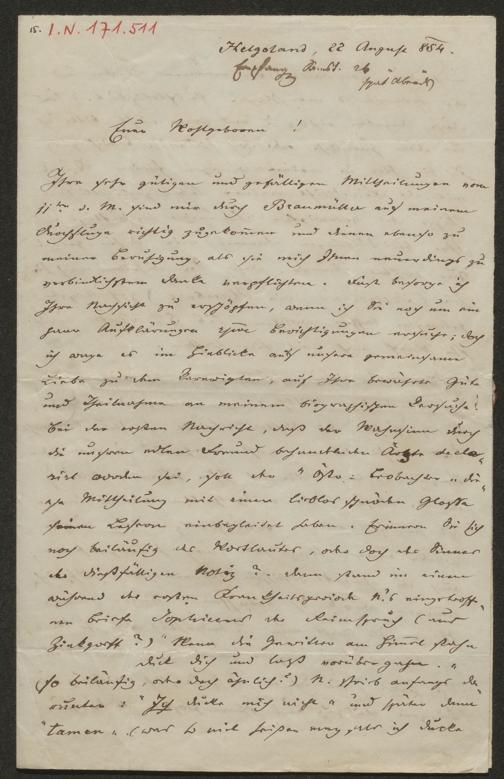 15. I.N. 171.511
Helgoland, 22 August 854.
Empfang Samst. 26
spät Abends
Euer Wohlgeboren !
Ihre sehr gütigen und gefälligen Mittheilungen vom
11ten d. M. sind mir durch Braumüller auf meinem
Ausfluge richtig zugekommen und dienen ebenso zu
meiner Beruhigung, als sie mich Ihnen neuerdings zu
verbindlichstem Danke verpflichten. Fast besorge ich
Ihre Nachsicht zu erschöpfen, wenn ich Sie noch um ein
paar Aufklärungen Berichtigungen ersuche; doch
ich wage es im Hinblicke auf unsere gemeinsame
Liebe zu dem Verewigten, auf Ihre bewährte Güte
und Theilnahme an meinem biographischen Versuche.
Bei der ersten Nachricht, daß der Wahnsinn durch
die unsern edlen Freund behandelnden Ärzte decla-
rirt worden sei, soll der "Östr: Beobachter" die-
se Mittheilung mit einer lieblos schnöden Glosse
seinen Lesern einbegleitet haben. Erinnern Sie sich
noch beiläufig des Wortlautes, oder doch des Sinnes
der dießfälligen Notiz? – Dann stand in einem
während der ersten Krankheitsperiode N's eingetroff-
nen Briefe Sophiens der Reimspruch (aus
Zinkgräff?) "Wenn die Gewitter am Himmel stehn
duck dich und laß vorübergehn."
(so beiläufig, oder doch ähnlich?) N. schrieb anfangs da-
runter: "Ich ducke mich nicht" und später dann
"tamen". (was so viel heißen mag, als ich ducke